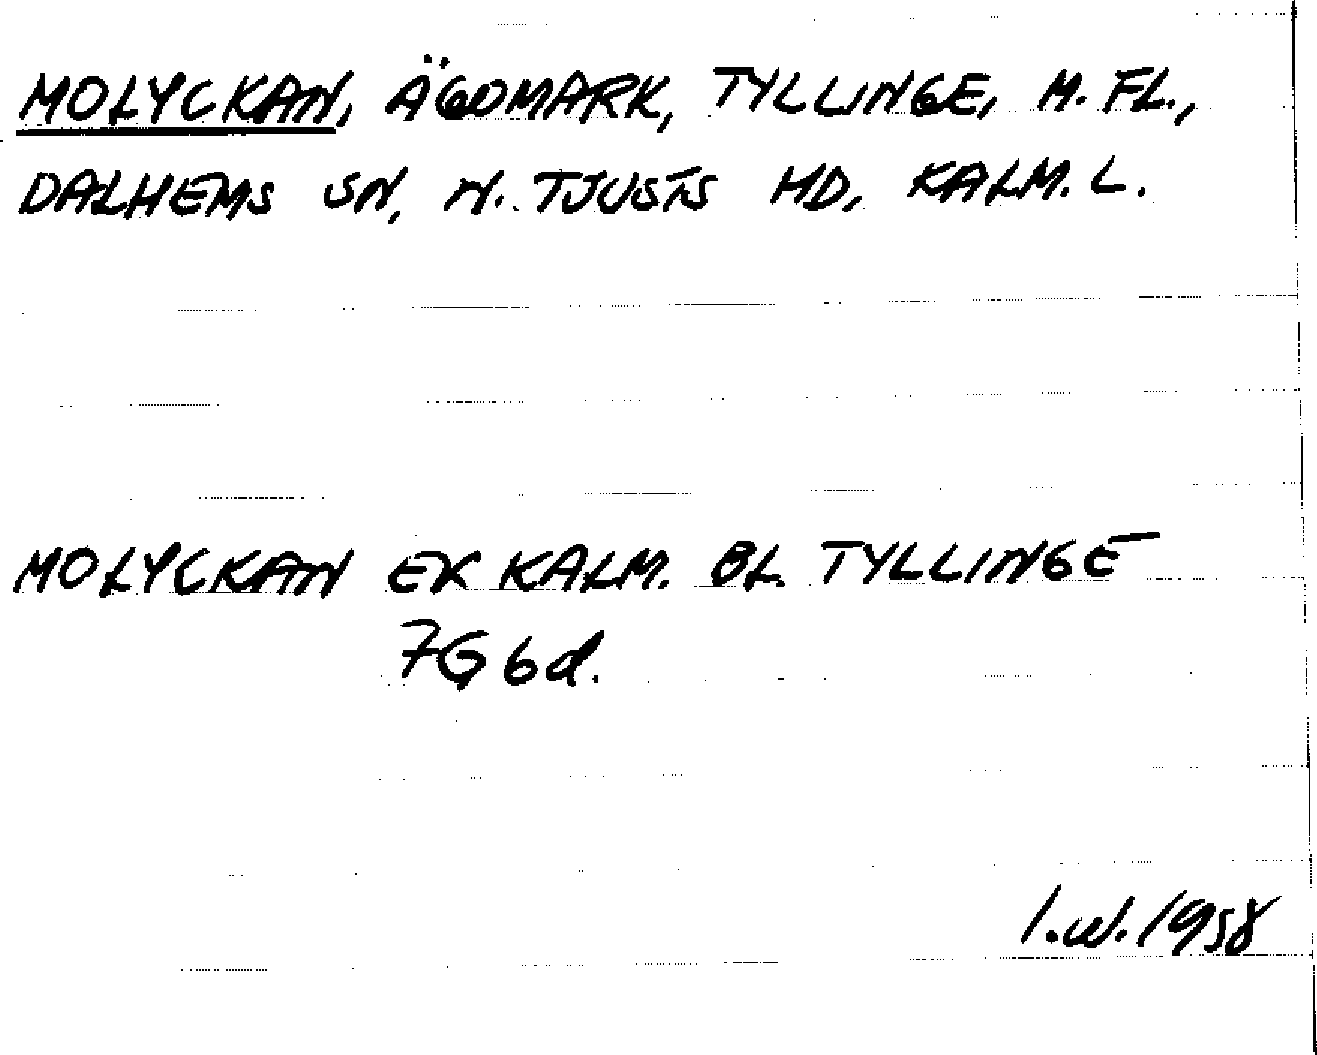 MOLYCKAN, ÄGOMARK, TYLLINGE, M. FL.,
DALHEMS SN, N. TJUSTS HD, KALM. L.
MOLYCKAN EK KALM. BL TYLLINGE
7G 6d.
I.W. 1958